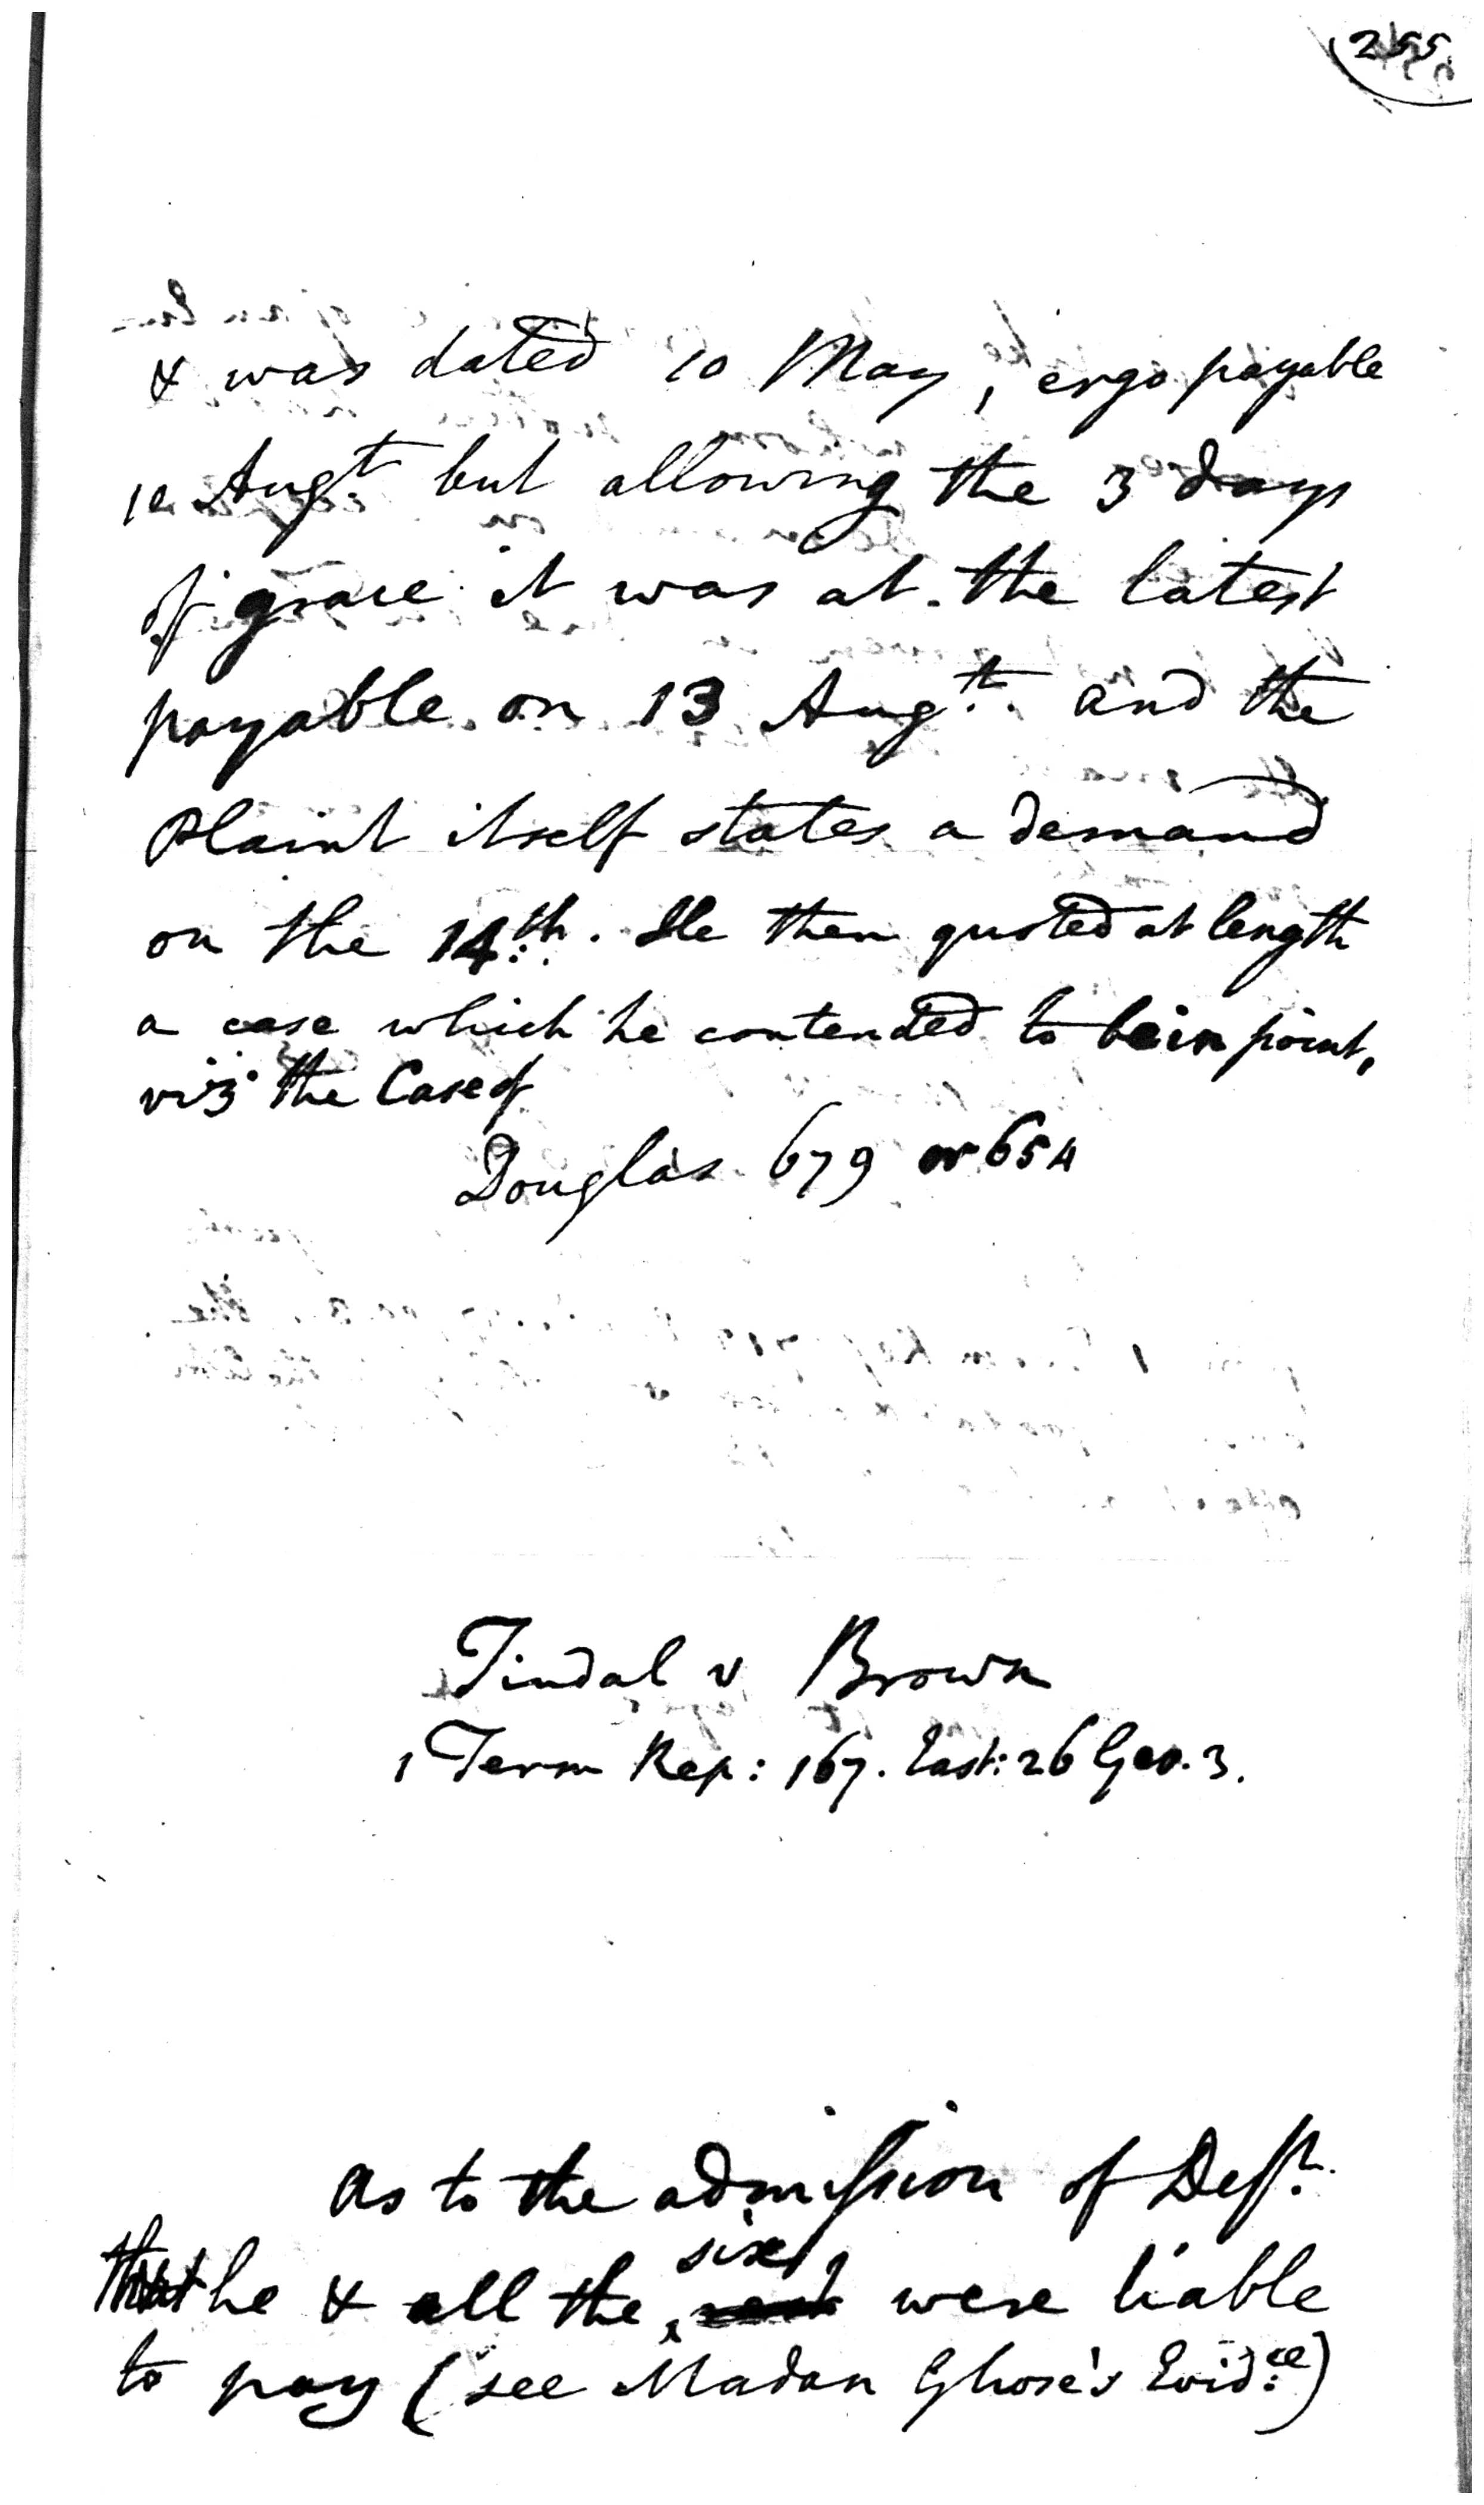 255
& was dated 10 May, ergo payable
10 Augt. but allowing the 3 days
of grace it was at the latest
payable on 13 Augt. and the
Plaint itself states a demand
on the 14th. He then quoted at length
a case which he contended to be in point,
viz the Case of
Douglas 679 or 654
Tindal v Brown
1 Term Rep: 167. East: 26 Geo. 3.
As to the admission of Deft.
that he & all the six were liable
to pay (see Madan Ghose's Evid:ce)